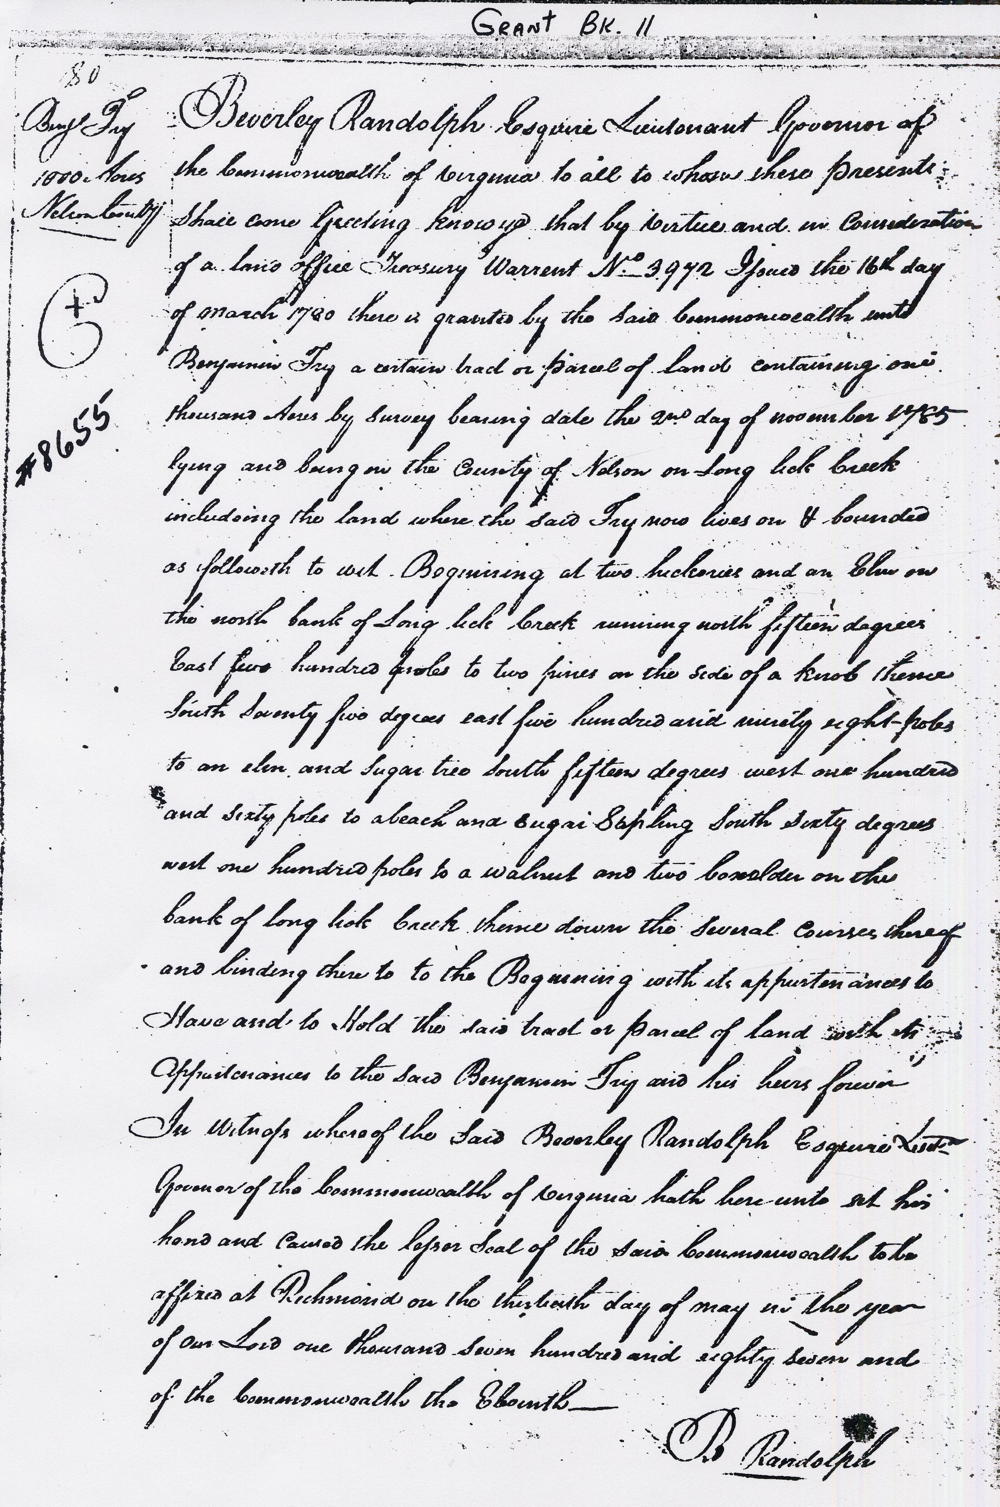 GRANT BK. 11
80
Benj Fry
1000 Acres
Nelson County
#8655
Beverley Randolph Esquire Lieutenant Governor of
the Commonwealth of Virginia to all to whom these presents
Shall come Greeting know ye that by virtue and in Consideration
of a land office Treasury Warrent No. 3972 Issued the 16th day
of march 1780 there is granted by the said Commonwealth unto
Benjamin Fry a certain tract or parcel of land containing one
thousand Acres by survey bearing date the 2nd day of november 1785
lying and being in the County of Nelson on Long lick Creek
including the land where the said Fry now lives on & bounded
as followeth to wit. Beginning at two hickories and an Elm on
the north bank of Long lick Creek running north fifteen degrees
East five hundred poles to two pines on the side of a knob thence
South Seventy five degrees east five hundred and ninety eight poles
to an elm and sugar tree South fifteen degrees west one hundred
and sixty poles to a beach and Sugar Sapling South Sixty degrees
west one hundred poles to a walnut and two boxelder on the
bank of long lick Creek thence down the several courses thereof
and binding there to to the Beginning with its appurtenances to
Have and to Hold the said tract or parcel of land with its
Appurtenances to the said Benjamin Fry and his heirs forever
In Witness whereof the Said Beverley Randolph Esquire Lieut
Governor of the Commonwealth of Virginia hath here unto set his
hand and caused the lesser Seal of the said Commonwealth to be
affixed at Richmond on the thirtieth day of may in the year
of our Lord one thousand seven hundred and eighty seven and
of the Commonwealth the Eleventh
B Randolph